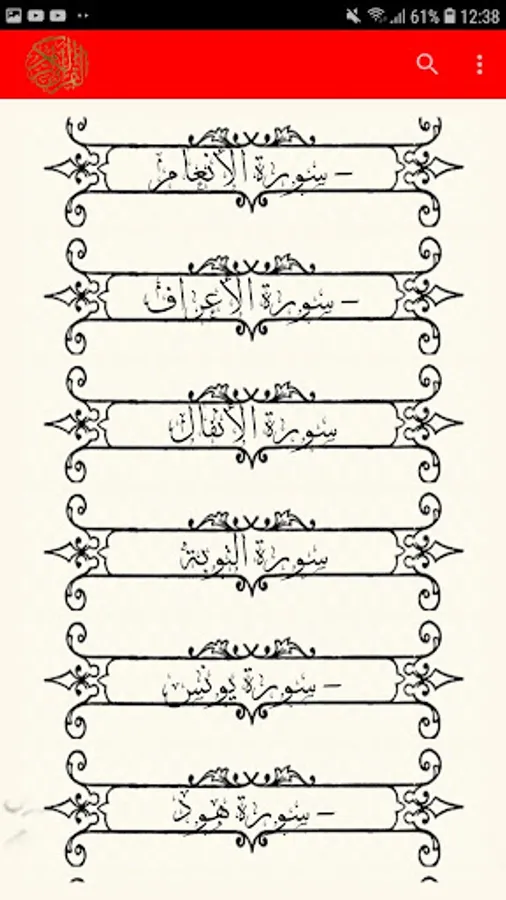 61% 12:38
– سورة الأنعام
– سورة الأعراف
سورة الأنفال
سورة التوبة
– سورة يونس
– سورة هود